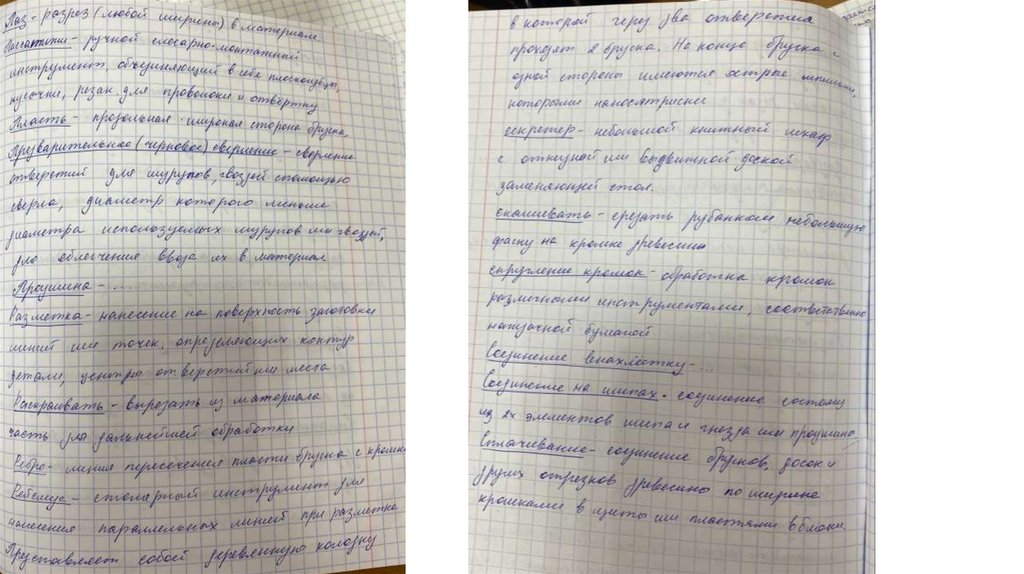 Паз - разрез (любой ширины) в материале.
Пассатижи - ручной слесарно-монтажный
инструмент, объединяющий в себе плоскогубцы,
кусачки, резак для проволоки и отвёртку
Пласть - продольная широкая сторона бруска.
Предварительное (черновое) сверление - сверление
отверстий для шурупов, гвоздей с помощью
сверла, диаметр которого меньше
диаметра используемых шурупов или гвоздей,
для облегчения ввоза их в материал
Проушина - ...
Разметка - нанесение на поверхность заготовки
линий или точек, определяющих контур
детали, центры отверстий или места
Раскраивать - вырезать из материала
часть для дальнейшей обработки
Ребро - линия пересечения пласти бруска с кромкой
Рейсмус - столярный инструмент для
нанесения параллельных линий при разметке
Представляет собой деревянную колодку
в которой через два отверстия
проходят 2 бруска. На конце бруска с
одной стороны имеются острые шпильки,
которыми наносят риски
секретер - небольшой книжный шкаф
с откидной или выдвижной доской
заменяющей стол.
скашивать - срезать рубанком небольшую
фаску на кромке древесины
скругление кромок - обработка кромок
различными инструментами, соответственно
наждачной бумагой
Соединение внахлёстку - ...
Соединение на шипах - соединение состоящ
из 2х элементов шипа и гнезда или проушины
Сплачивание - соединение брусков, досок и
других отрезков древесины по ширине
кромками в щиты или пластями в блоки.